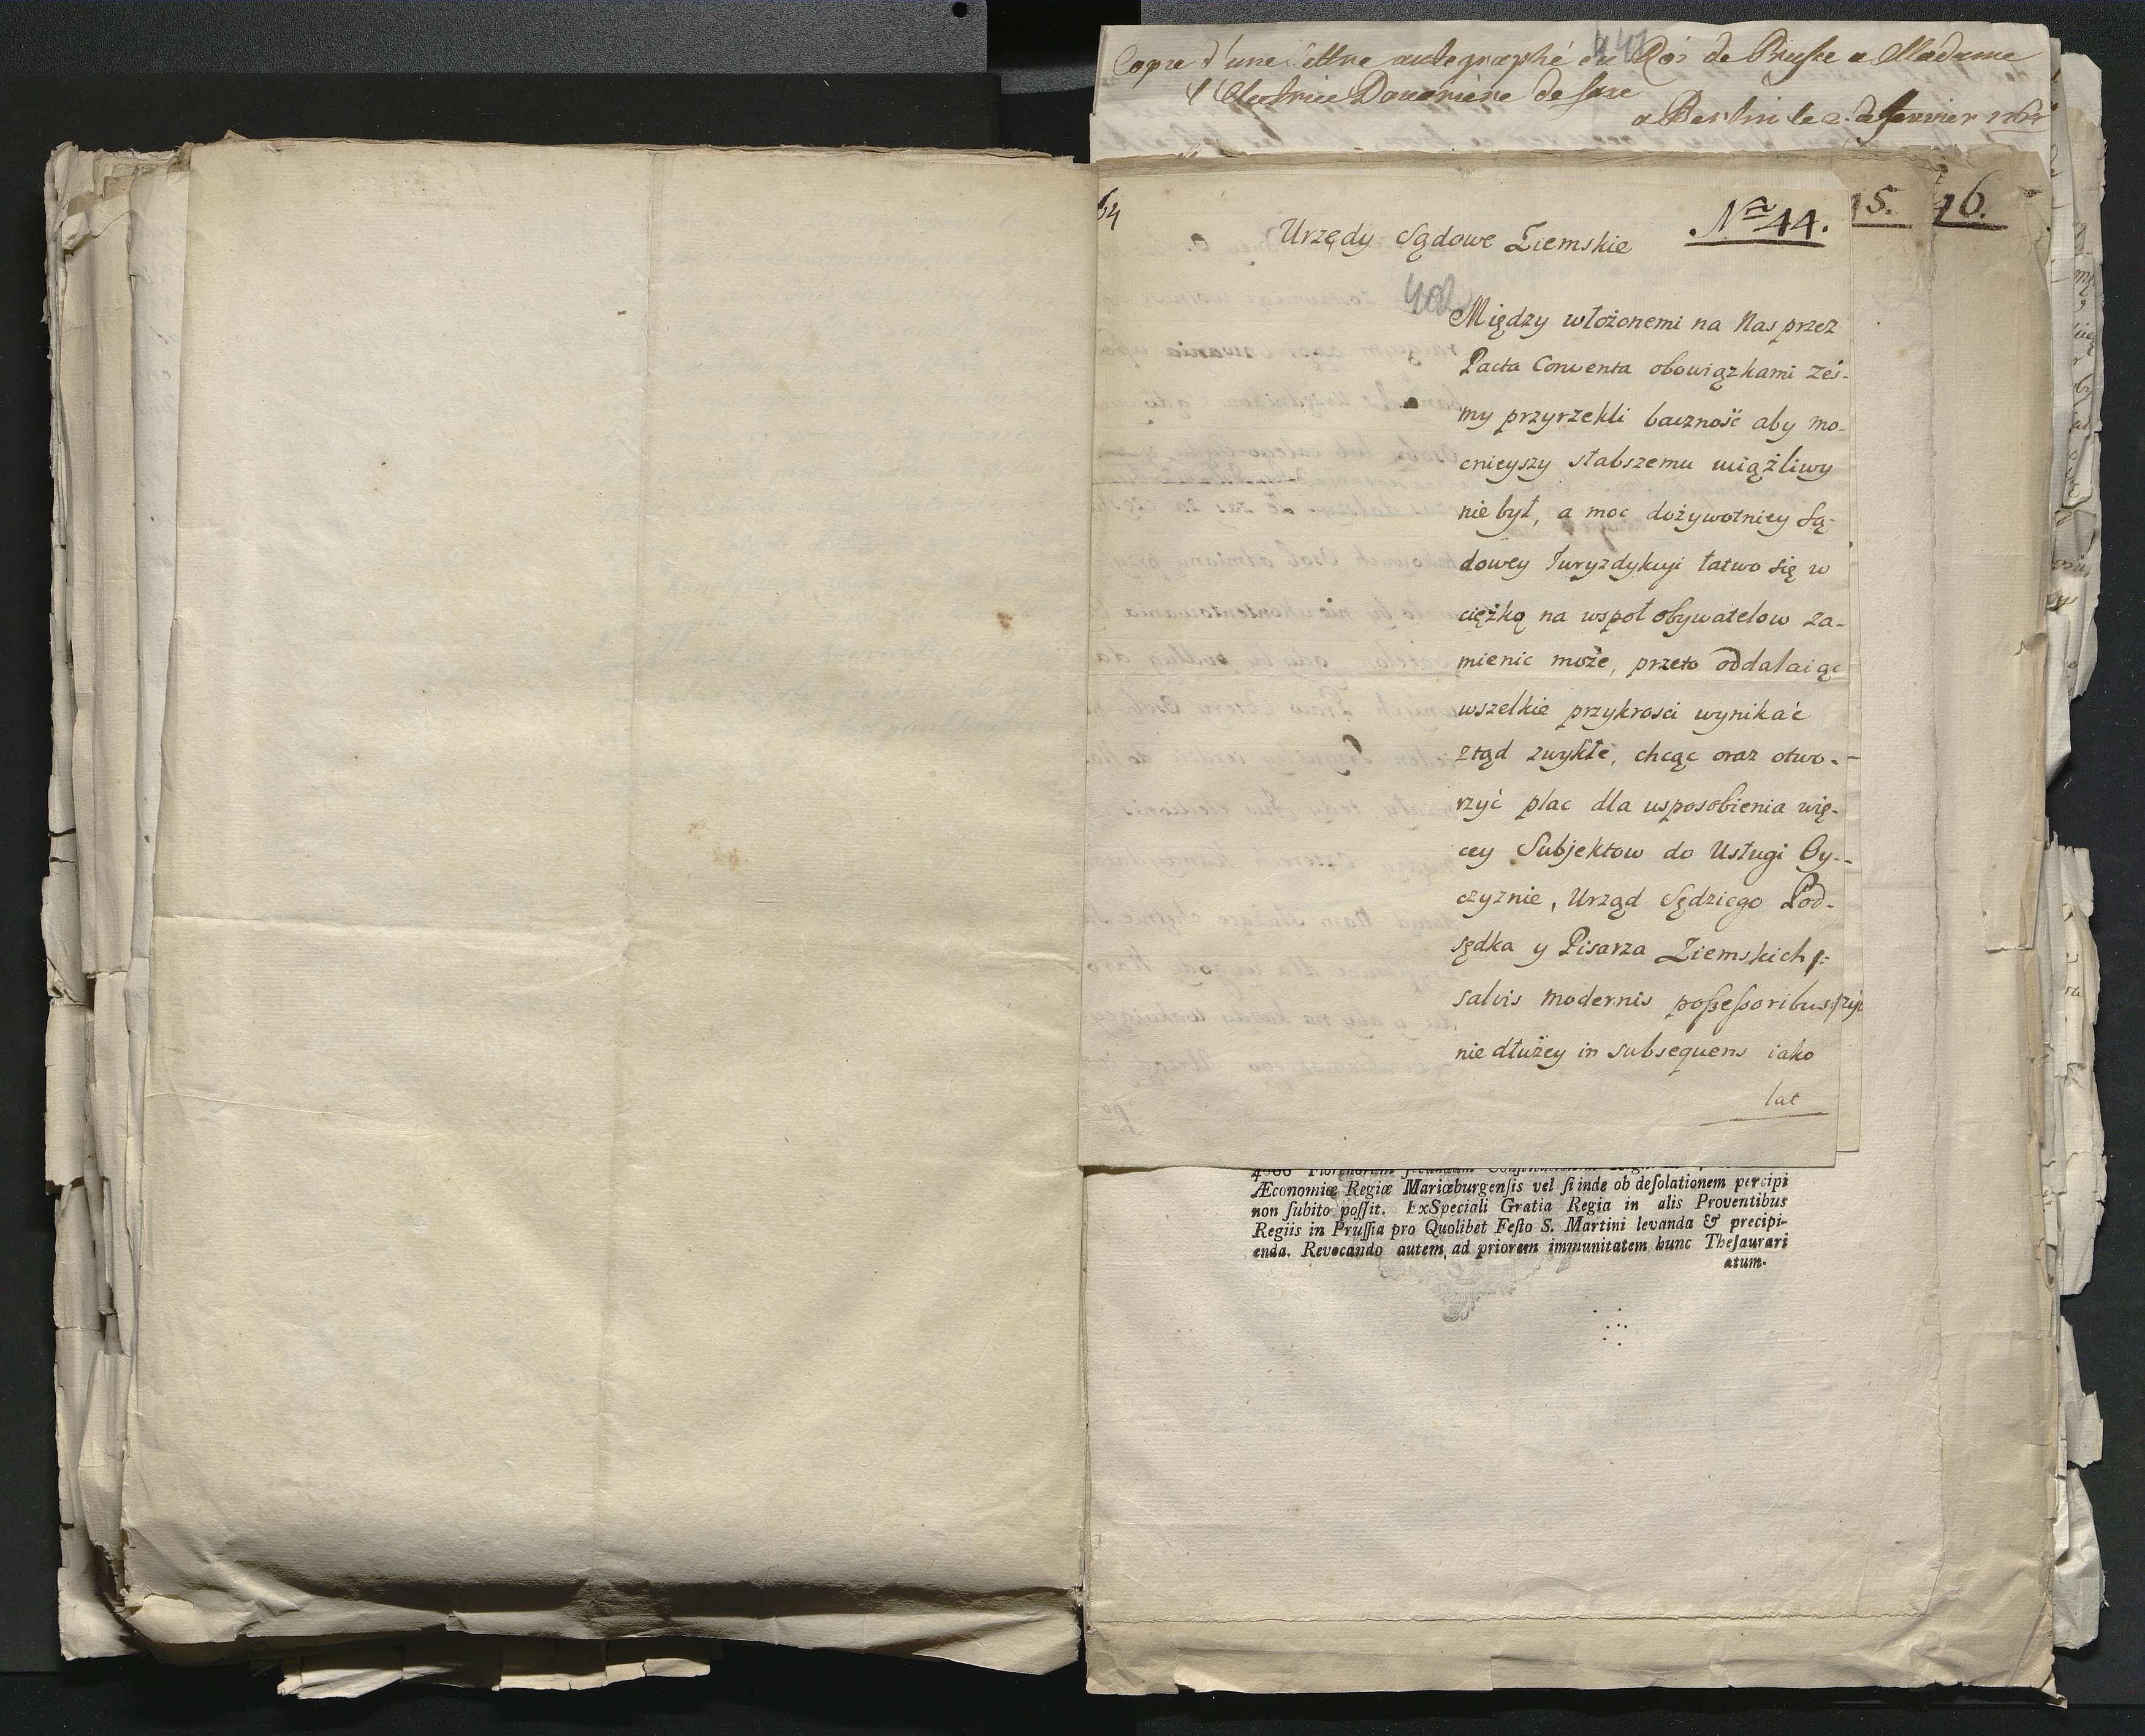 Copie d'une lettre autographé du Roi de Prusse a Madame
l'Electrice Douariere de saxe
a Berlin le 2. de janvier
64
Nro 44.
15.
16.
Urzędy Sądowe Ziemskie
402
Między włożonemi na Nas przez
Pacta Conventa obowiązkami żeś-
my przyrzekli baczność aby mo-
cnieyszy słabszemu uciążliwy
nie był, a moc dożywotniey Są-
dowey Juryzdykcyi łatwo się w
ciężką na wspoł obywatelow za-
mienic może, przeto oddalaiąc
wszelkie przykrosci wynikać
ztąd zwykłe, chcąc oraz otwo-
rzyć plac dla usposobienia wię-
cey Subjektow do Usługi Oy-
czyznie, Urząd Sędziego Pod-
sędka y Pisarza Ziemskich /:
salvis modernis possessoribus :/
nie dłużey in subsequens iako
lat
4000 Florenorum secundum
Æconomiæ Regiæ Mariæburgensis vel si inde ob desolationem percipi
non subito possit. ExSpeciali Gratia Regia in alis Proventibus
Regiis in Prussia pro Quolibet Festo S. Martini levanda & precipi-
enda. Revocando autem ad priorem immunitatem hunc Thesaurari
atum.